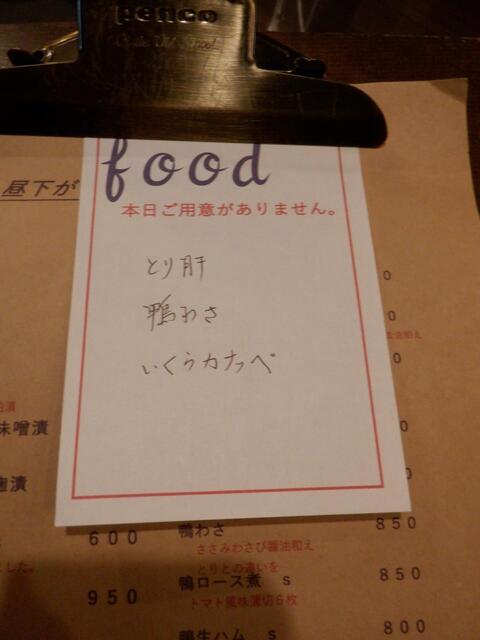 penco
昼下が
food
本日ご用意がありません。
とり肝
鴨わさ
いくらカナッペ
0
0
油和え
0
0
0
味噌漬
麹漬
600
ました。
950
鴨わさ
850
ささみわさび醤油和え
とりとの違いを
鴨ロース煮 s
850
トマト風味薄切6枚
鴨生ハム s
800